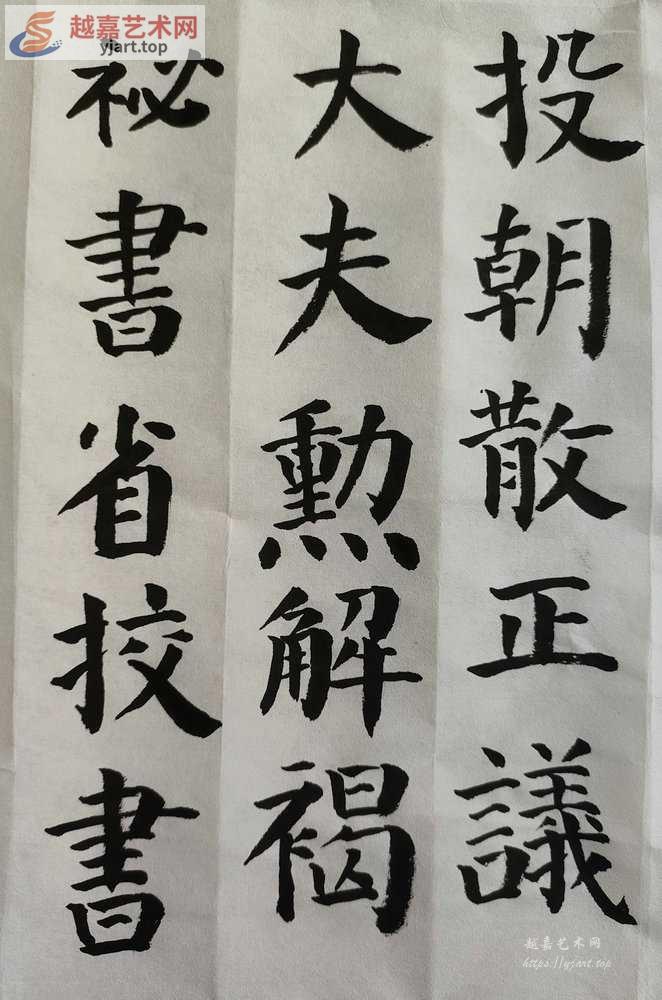 投朝散正議
大夫勲解褐
祕書省挍書
越嘉艺术网
yjart.top
越嘉艺术网
https://yjart.top